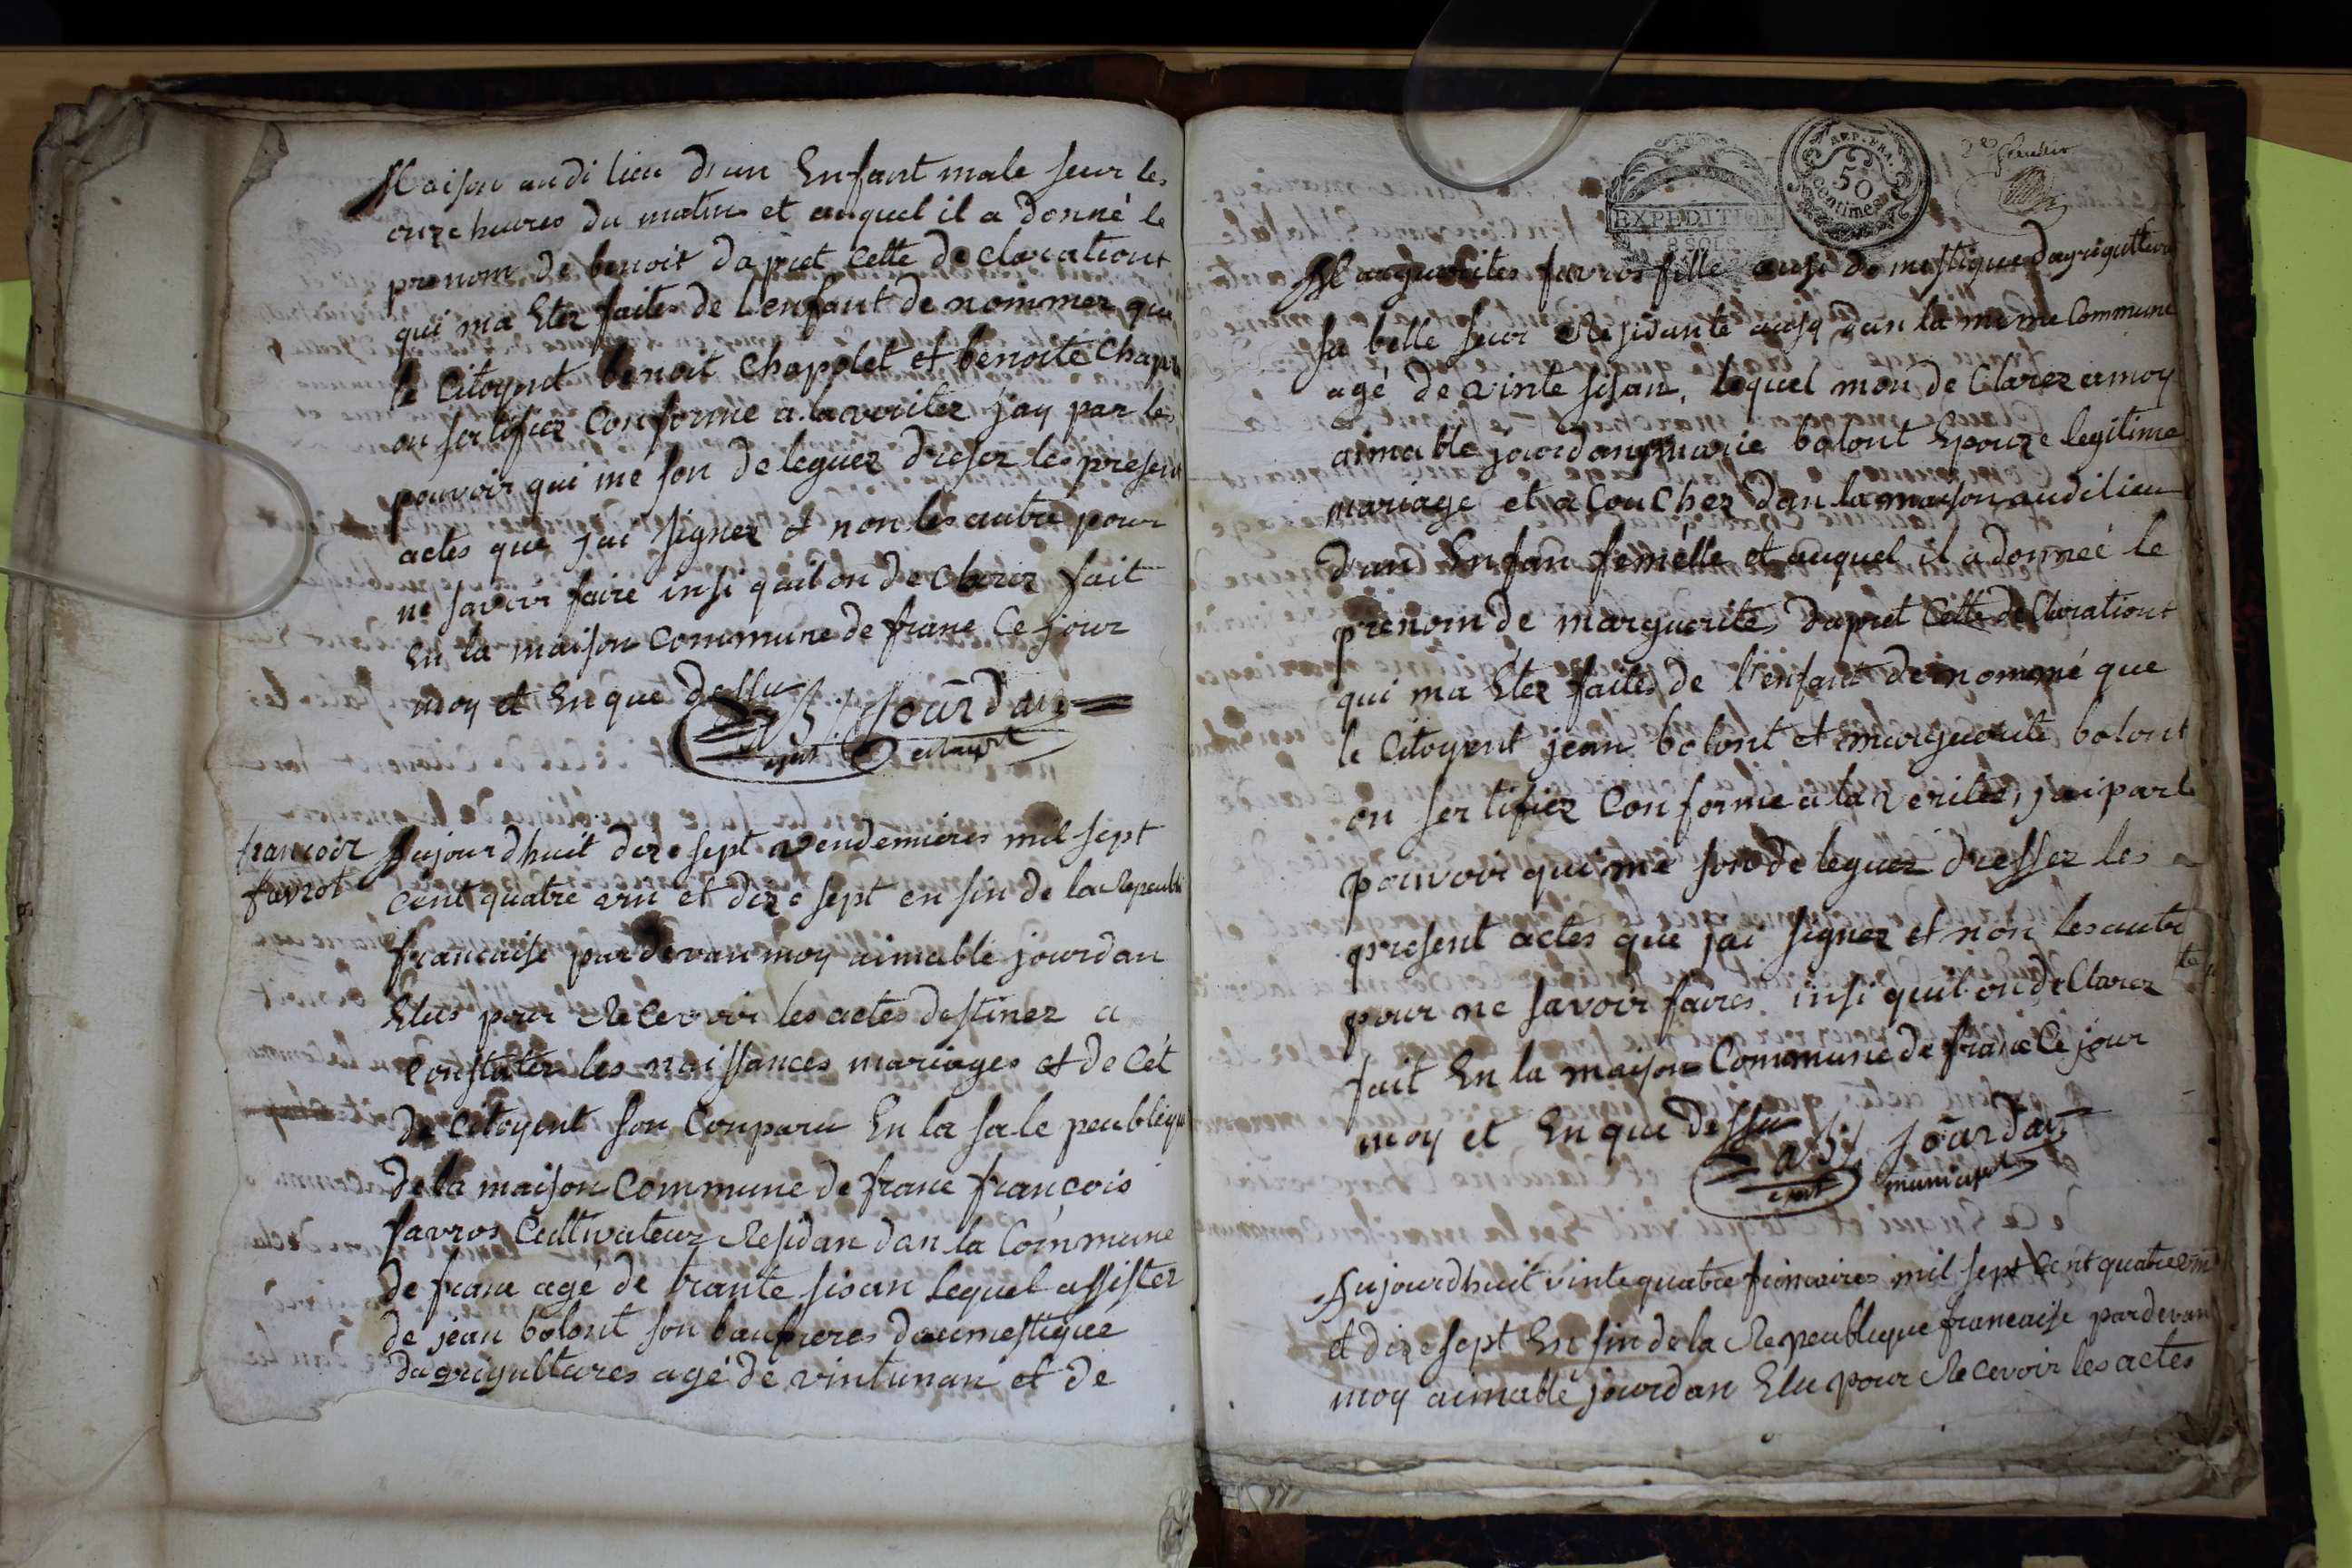 Maison au di lieu d'un Enfant male seur les
onze heures du matins et auquel il a donné le
prenom de benoit dapret Cette de clarationt
qui ma Etez faites de L'enfant de nommez que
le Citoyent benoit Chapolet et benoite Chap
on sertifiez Conforme a la veritez jay par les
pouvoir qui me son de leguez dresez les present
actes que jai signez et non les autre pour
ne savoir faire insi quil on de Clarez fait
En la maison Commune de frans Ce jour
moy et En que dessu
Jourdan
francoir
favrot
Aujourdhuit dize sept vendemieres mil sept
Cent quatre vin et dize sept en sin de la Repeubli
francaise par devan moy aimable jourdan
Elus pour Recevoir les actes destinez a
Constater les naissances mariages et de Cét
de Citoyent son Conparu En la sale peublique
de la maison Commune de frans francois
favros Cultivateur Residan dan la Commune
de frans agé de trante sisan Lequel assistez
de jean bolont son bauferes doumestique
dagrigultures agé de vintunan et de
REP. FRA.
50
Centimes
EXPEDITION
8 SOLS
Marguerites favros fille ausi domestique dagrigulture
sa belle seur Residante ausy dan la meme Commune
agé de vinte sisan, Lequel mon de Clarez a moy
aimable jourdan marie bolont Epouze legitime
mariage et a Couchez dan la maison audi lieu
d'un Enfan femélle et auquel il a donneé le
prenom de marguerites dapret Cette de Clarationt
qui ma Etez faites de l'enfant de nommé que
le Citoyent jean bolont et marguerite bolont
on sertifiez Conforme a la veritez, jai par le
pouvoir qui me son de leguez dressez les
present actes que jai signez et non les autre
pour ne savoir faires insi quil on de Clarez
fait En la maison Commune de frans Ce jour
moy et En que dessu
Jourdan
municipal
Aujourdhuit vinte quatre frimaires mil sept Cent quatre vin
et dize sept En sin de la Repeublique francaise par devan
moy aimable jourdan Elu pour Recevoir les actes